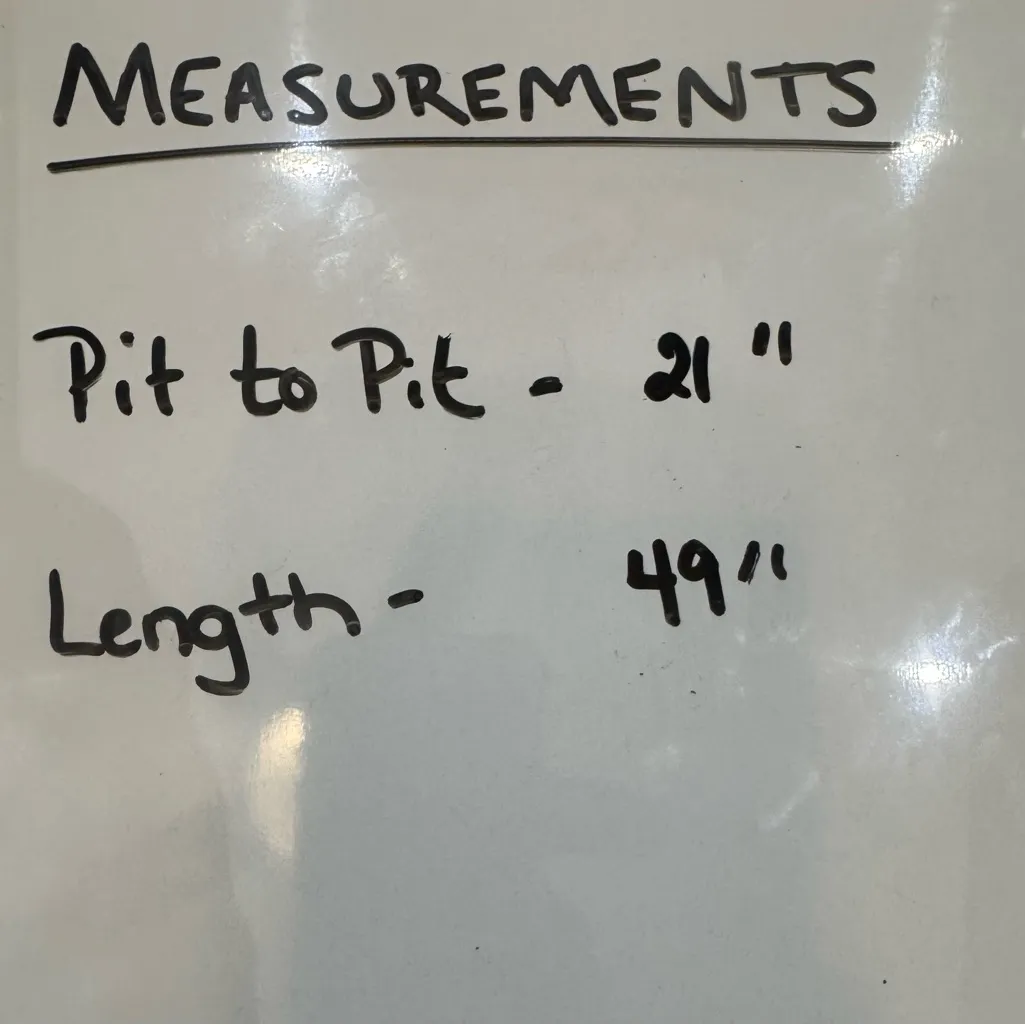 MEASUREMENTS
Pit to Pit - 21"
Length - 49"